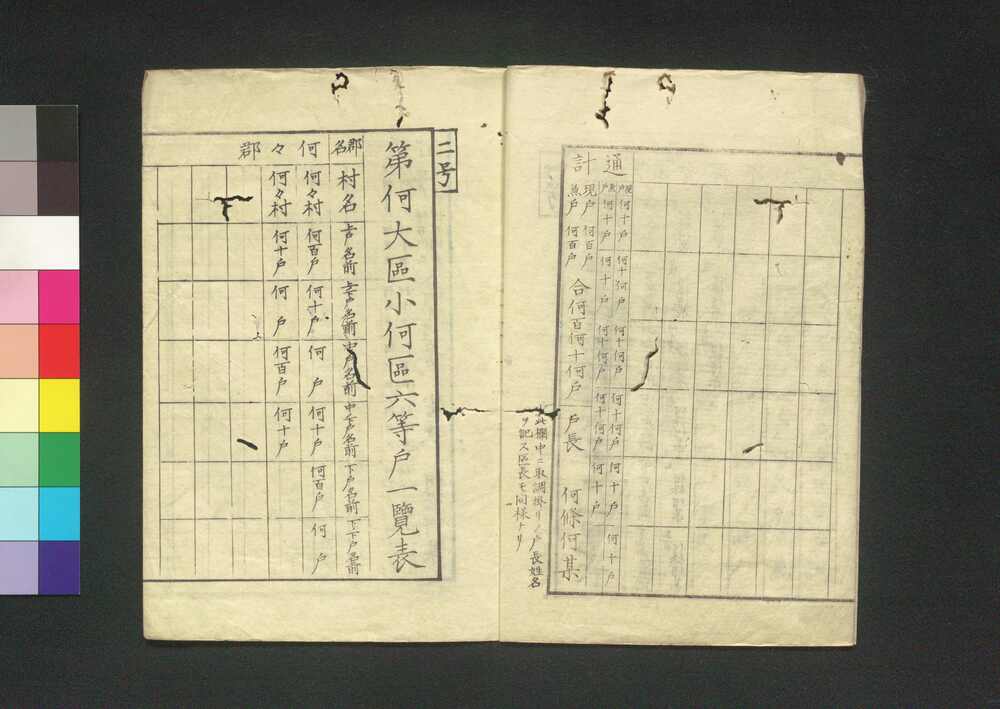 通計
現戸 無戸
何十戸 何十戸
何十何戸 何十戸
何十何戸 何十何戸
何十何戸 何十何戸
何十戸 何十戸
何十戸
現戸 何百戸
無戸 何百戸
合何百何十何戸 戸長 何條何某
此欄中ニ取調掛リノ戸長姓名
ヲ記ス区長モ同様ナリ
二号
第何大區小何區六等戸一覽表
郡名
村名
上戸名前
上下戸名前
中戸名前
中下戸名前
下戸名前
下下戸名前
何々郡
何々村
何百戸
何十戸
何戸
何十戸
何百戸
何戸
何々村
何十戸
何戸
何百戸
何十戸